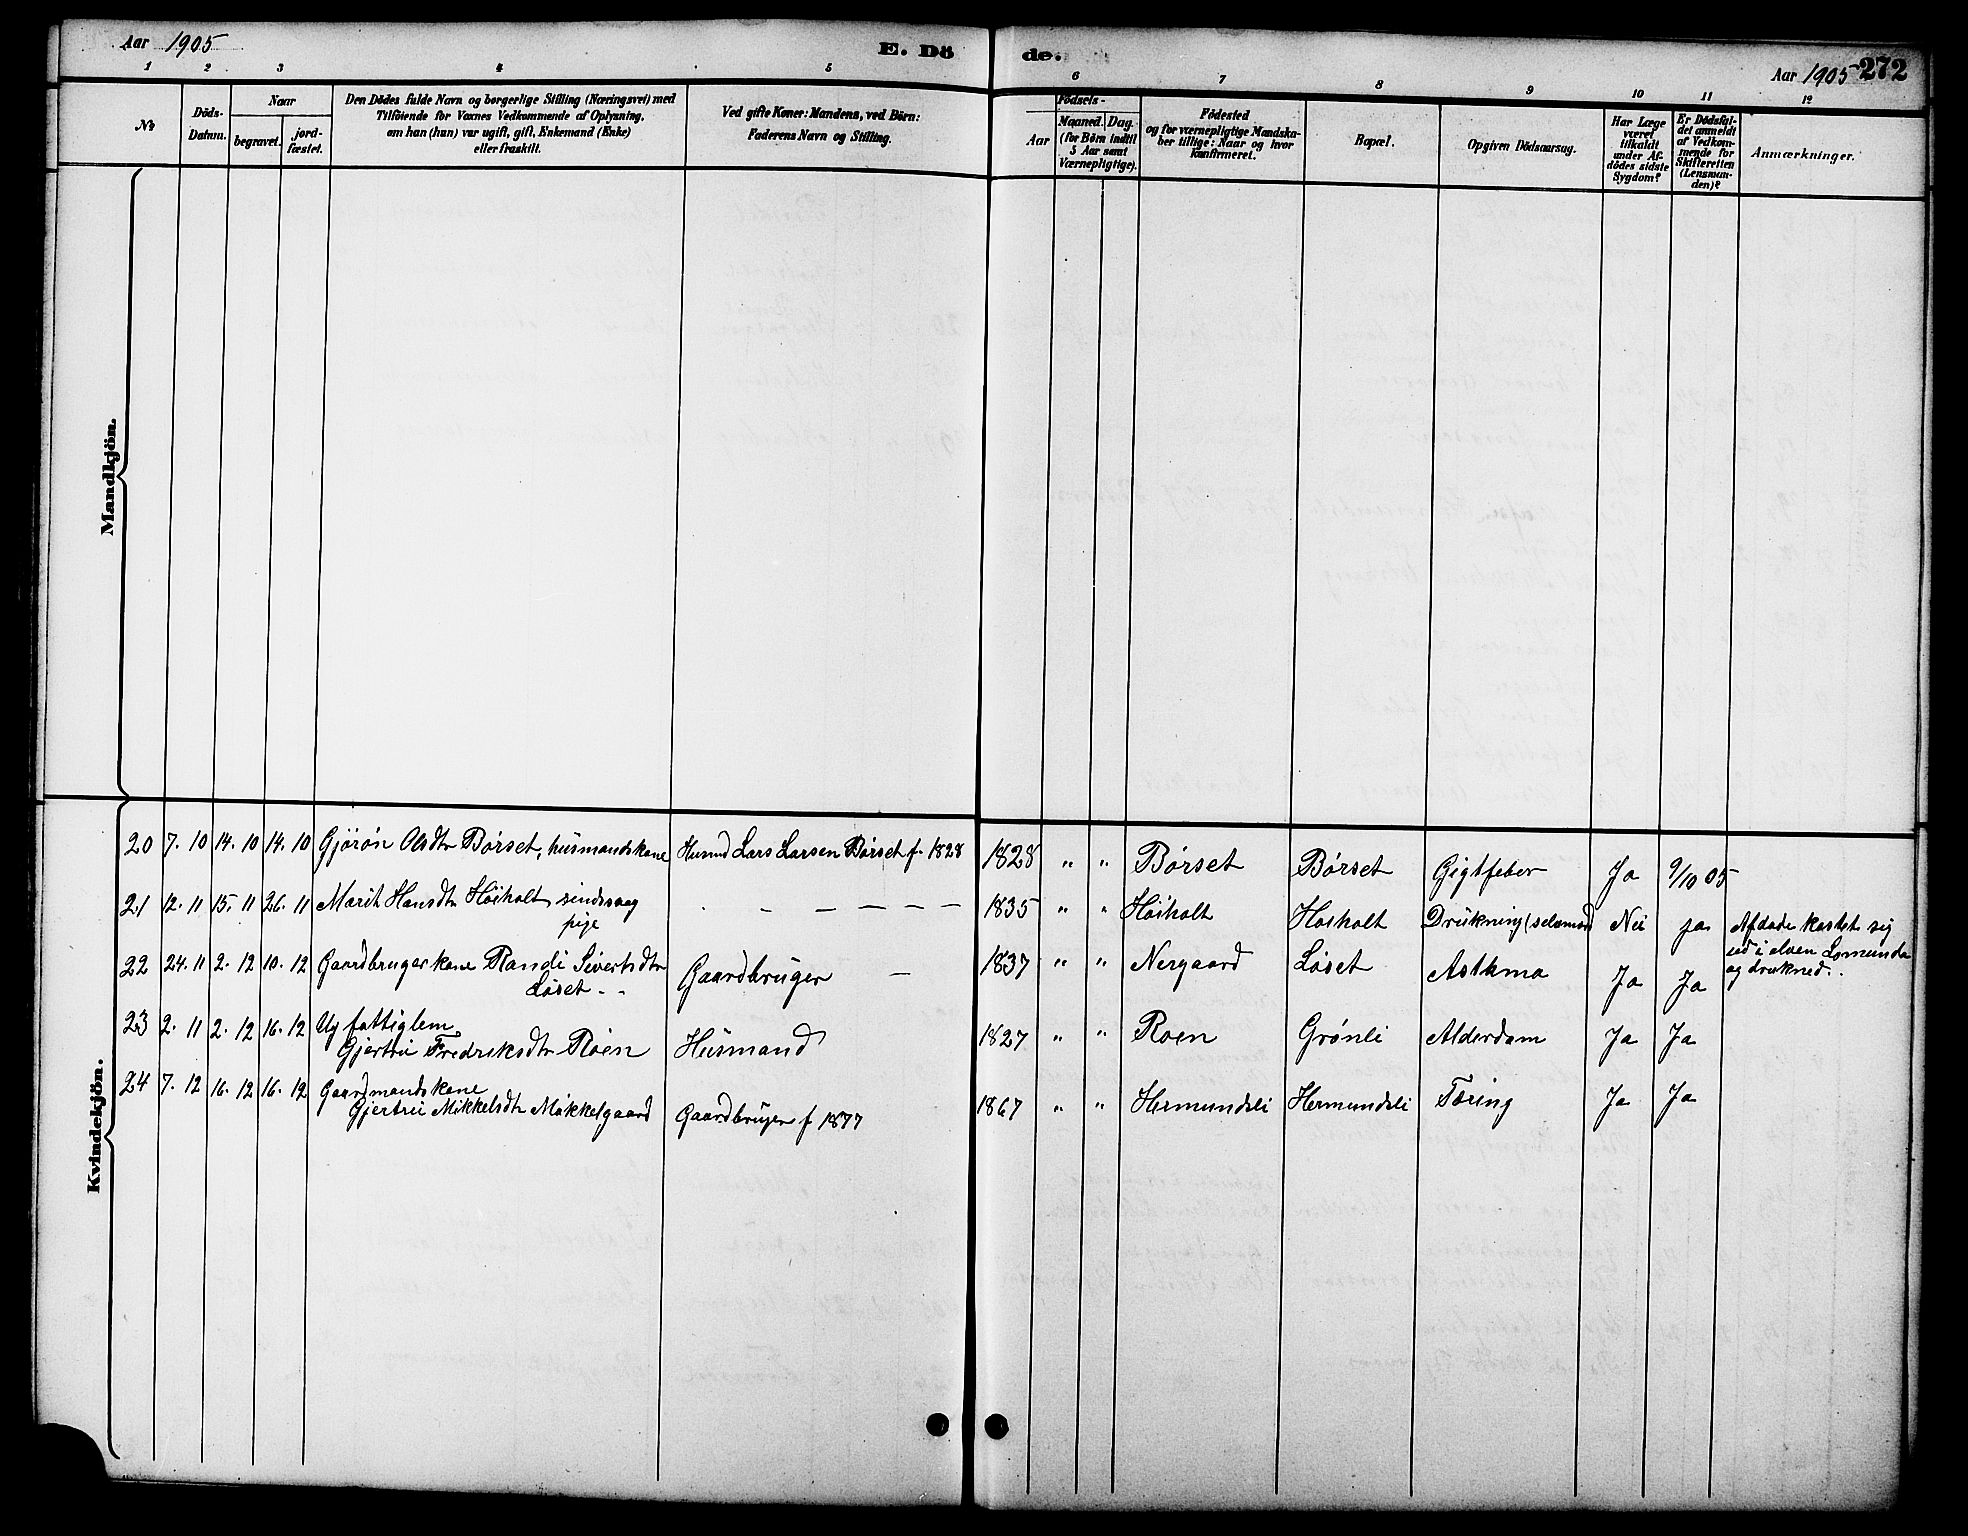 Aar 1905
E. Dö
de.
Aar 1905
272
1 2 3 4 5 6 7 8 9 10 11 12
No
Döds-
Datum.
Naar
begravet.
jord-
fæstet.
Den Dödes fulde Navn og borgerlige Stilling (Næringsvei) med
Tilföiende for Voxnes Vedkommende af Oplysning,
om han (hun) var ugift, gift, Enkemand (Enke)
eller fraskilt.
Ved gifte Koner: Mandens, ved Börn:
Faderens Navn og Stilling.
Födsels-
Aar
Maaned.
Dag.
(for Börn indtil
5 Aar samt
Værnepligtige).
Födested
og for værnepligtige Mandska-
ber tillige: Naar og hvor
konfirmeret.
Bopæl.
Opgiven Dödsaarsag.
Har Læge
været
tilkaldt
under Af-
dödes sidste
Sygdom?
Er Dödsfal-
det anmeldt
af Vedkom-
mende for
Skifteretten
(Lensman-
den)?
Anmærkninger.
Mandkjön.
Kvindekjön.
20 7. 10 14. 10 14. 10 Gjörön Olsdtr Børset, husmandskone Husmd Lars Larsen Børset f. 1828 1828 " " Børset Børset Gigtfeber Ja 9/10 05
21 12. 11 15. 11 26. 11 Marit Hansdtr Höiholt sindssvag
pige
- - - - - - 1835 " " Höiholt Höiholt Drukning (selvmord) Nei ja Afdøde kastet sig
ud i elven Lomunda
og drukned.
22 24. 11 2. 12 10. 12 Gaardbrugerkone Randi Sivertsdtr
Løset Gaardbruger - 1837 " " Nergaard Løset Asthma Ja Ja
23 2. 11 2. 12 16. 12 Ug fattiglem
Gjertru Fredriksdtr Roen Husmand 1827 " " Roen Grønli Alderdom Ja Ja
24 7. 12 16. 12 16. 12 Gaardmandskone
Gjertru Mikkelsdtr Mikkelsgaard Gaardbruger f 1877 1867 " " Hermundsli Hermundsli Tæring Ja Ja